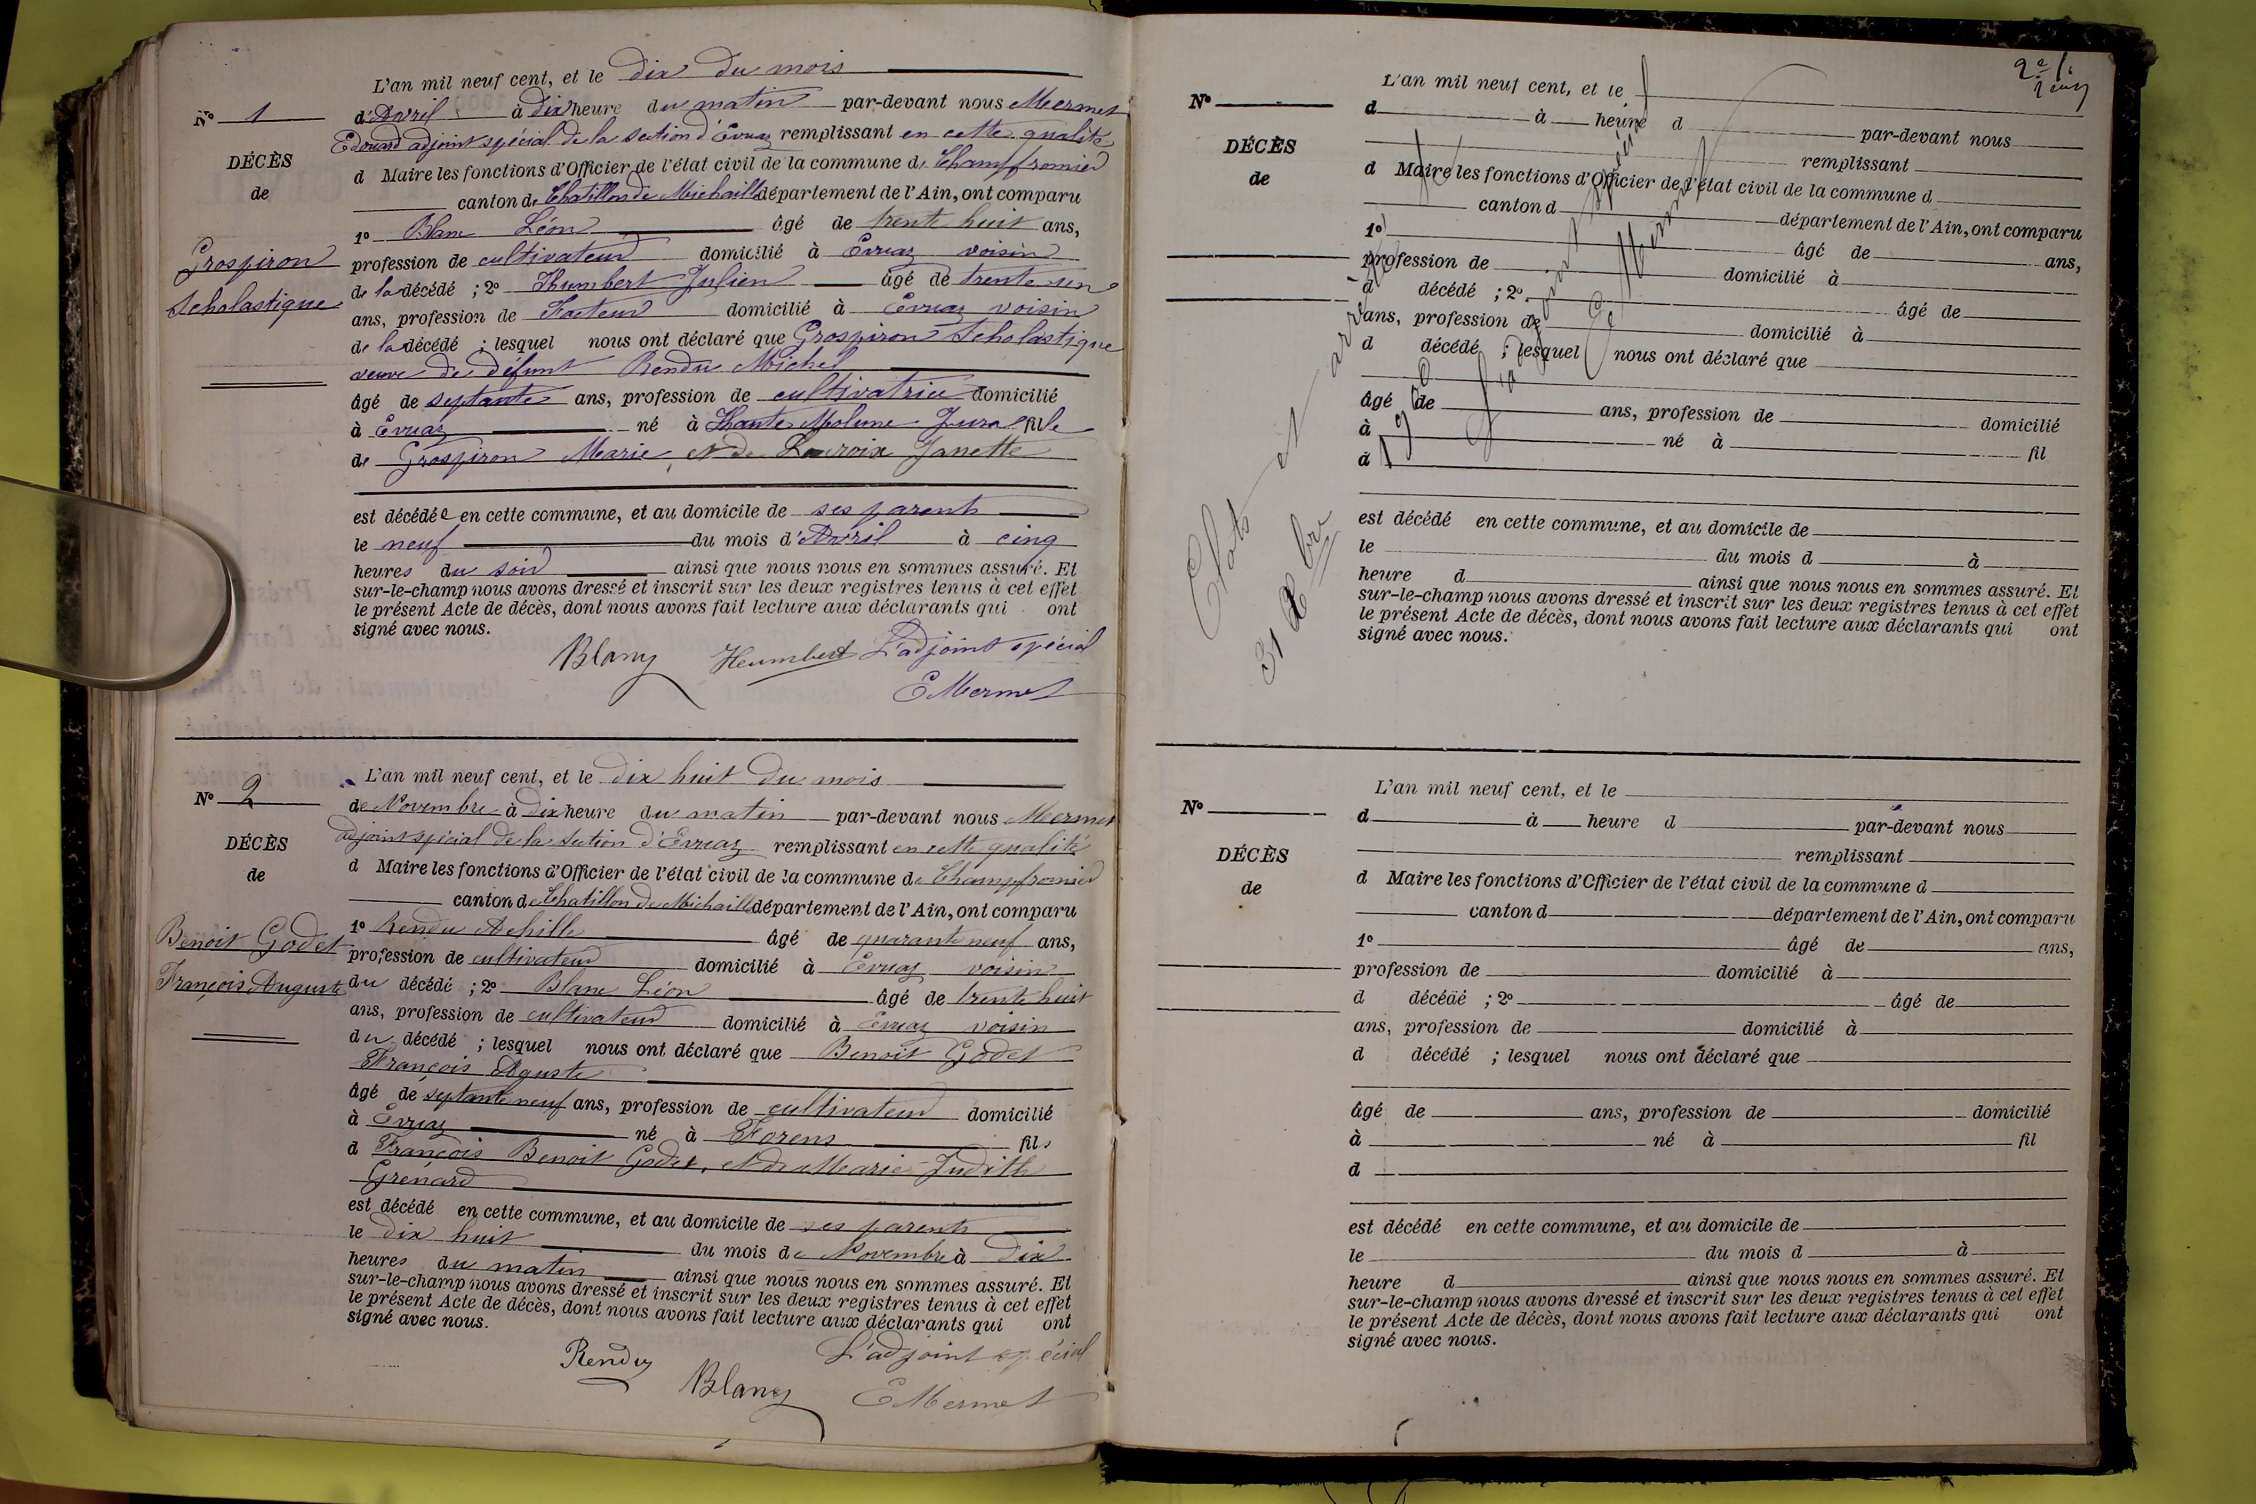 L'an mil neuf cent, et le dix du mois
N° 1
d'Avril à dix heure du matin par-devant nous Mermet
Edouard adjoint spécial de la section d'Evuaz remplissant en cette qualité
DÉCÈS
de
d Maire les fonctions d'Officier de l'état civil de la commune de Champfromier
canton de Chatillon de Michaille département de l'Ain, ont comparu
1° Blanc Léon âgé de trente huit ans,
Grospiron
Scholastique
profession de cultivateur domicilié à Evuaz voisin
de la décédé ; 2° Humbert Julien âgé de trente un
ans, profession de Facteur domicilié à Evuaz voisin
de la décédé ; lesquel nous ont déclaré que Grospiron Scholastique
veuve de défunt Rendu Michel
âgé de septante ans, profession de cultivatrice domicilié
à Evuaz né à Haute Molune Jura file
de Grospiron Marie et de Lacroix Janette
est décédée en cette commune, et au domicile de ses parents
le neuf du mois d'Avril à cinq
heures du soir ainsi que nous nous en sommes assuré. Et
sur-le-champ nous avons dressé et inscrit sur les deux registres tenus à cet effet
le présent Acte de décès, dont nous avons fait lecture aux déclarants qui ont
signé avec nous.
Blanc Humbert L'adjoint spécial
E Mermet
L'an mil neuf cent, et le dix huit du mois
N° 2
de Novembre à dix heure du matin par-devant nous Mermet
adjoint spécial de la section d'Evuaz remplissant en cette qualité
DÉCÈS
de
d Maire les fonctions d'Officier de l'état civil de la commune de Champfromier
canton de Chatillon de Michaille département de l'Ain, ont comparu
1° Rendu Achille âgé de quarante neuf ans,
Benoit Godet
François Auguste
profession de cultivateur domicilié à Evuaz voisin
du décédé ; 2° Blanc Léon âgé de trente huit
ans, profession de cultivateur domicilié à Evuaz voisin
du décédé ; lesquel nous ont déclaré que Benoit Godet
François Aguste
âgé de septante neuf ans, profession de cultivateur domicilié
à Evuaz né à Forens fils
d François Benoit Godet, et de Marie Judith
Grenard
est décédé en cette commune, et au domicile de ses parents
le dix huit du mois de Novembre à Dix
heures du matin ainsi que nous nous en sommes assuré. Et
sur-le-champ nous avons dressé et inscrit sur les deux registres tenus à cet effet
le présent Acte de décès, dont nous avons fait lecture aux déclarants qui ont
signé avec nous.
Rendu Blanc L'adjoint spécial
E Mermet
L'an mil neuf cent, et le
N°
d à heure d par-devant nous
remplissant
DÉCÈS
de
d Maire les fonctions d'Officier de l'état civil de la commune d
canton d département de l'Ain, ont comparu
1° âgé de ans,
profession de domicilié à
d décédé ; 2° âgé de
ans, profession de domicilié à
d décédé ; lesquel nous ont déclaré que
âgé de ans, profession de domicilié
à né à fil
d
est décédé en cette commune, et au domicile de
le du mois d à
heure d ainsi que nous nous en sommes assuré. Et
sur-le-champ nous avons dressé et inscrit sur les deux registres tenus à cet effet
le présent Acte de décès, dont nous avons fait lecture aux déclarants qui ont
signé avec nous.
Clos et arrêté le
31 Xbre 1900
L'adjoint spécial
E Mermet
L'an mil neuf cent, et le
N°
d à heure d par-devant nous
remplissant
DÉCÈS
de
d Maire les fonctions d'Officier de l'état civil de la commune d
canton d département de l'Ain, ont comparu
1° âgé de ans,
profession de domicilié à
d décédé ; 2° âgé de
ans, profession de domicilié à
d décédé ; lesquel nous ont déclaré que
âgé de ans, profession de domicilié
à né à fil
d
est décédé en cette commune, et au domicile de
le du mois d à
heure d ainsi que nous nous en sommes assuré. Et
sur-le-champ nous avons dressé et inscrit sur les deux registres tenus à cet effet
le présent Acte de décès, dont nous avons fait lecture aux déclarants qui ont
signé avec nous.